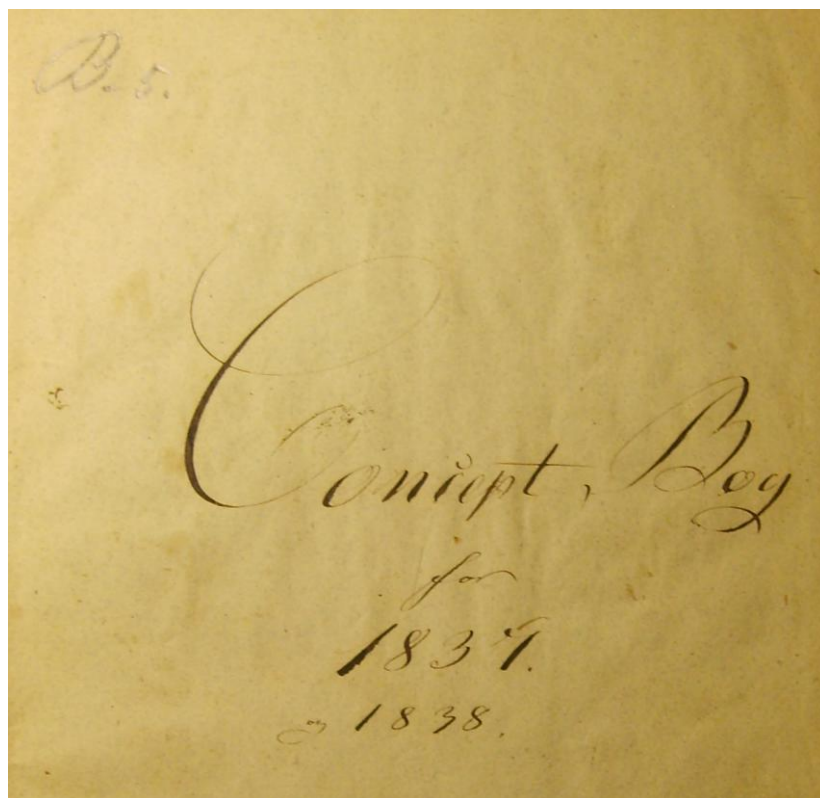 B. 5.
Concept, Bog
for
1837.
og 1838.